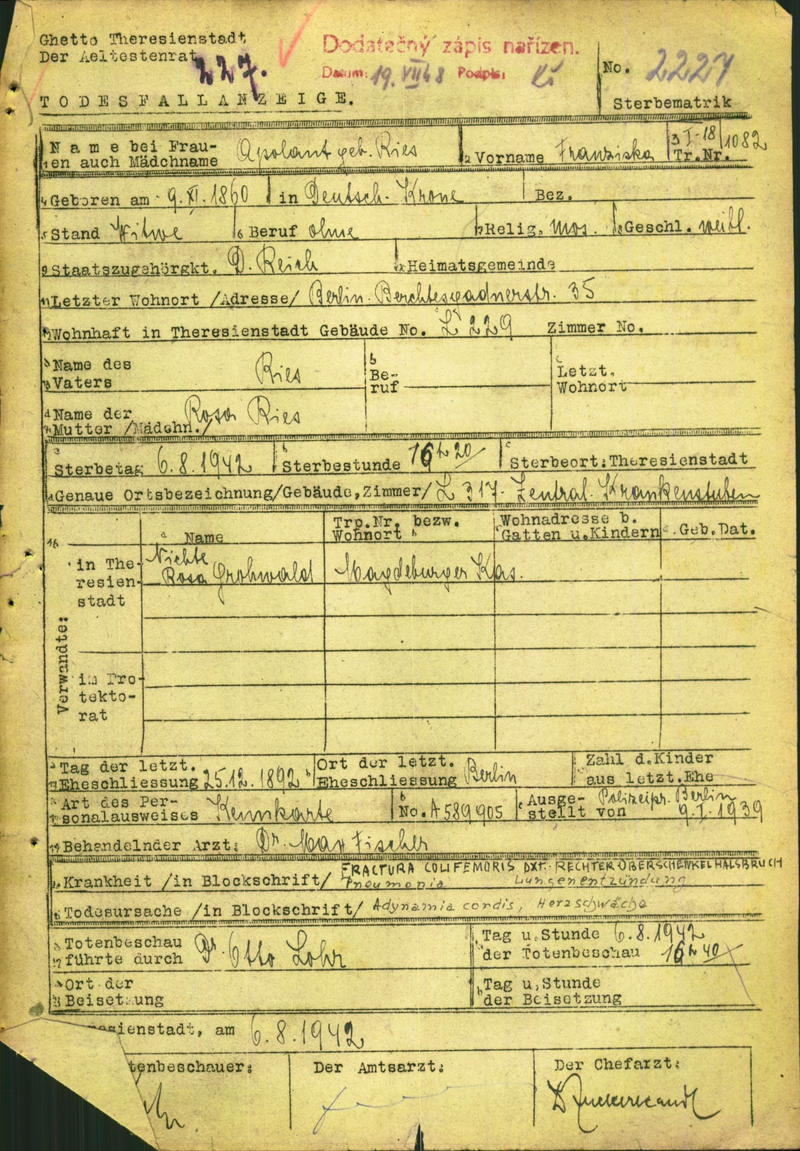 Ghetto Theresienstadt
Der Aeltestenrat
227.
Dodatečný zápis nařízen.
Datum: 19. VII 48 Podpis:
No. 2227
Sterbematrik
TODESFALLANZEIGE.
Name bei Frauen auch Mädchname Apolant geb. Ries
Vorname Franziska
I-18/1082
Tr.Nr.
Geboren am 9. XI. 1860 in Deutsch-Krone Bez.
Stand Witwe Beruf ohne Relig. mos. Geschl. weibl.
Staatszugehörgkt. D. Reich Heimatsgemeinde
Letzter Wohnort /Adresse/ Berlin. Berchtesgadnerstr. 35
Wohnhaft in Theresienstadt Gebäude No. L 229 Zimmer No.
Name des Vaters Ries
Beruf
Letzt. Wohnort
Name der Mutter /Mädchn./ Rosa Ries
Sterbetag 6.8.1942 Sterbestunde 16 h 20 Sterbeort: Theresienstadt
Genaue Ortsbezeichnung/Gebäude, Zimmer/ L 317. Zentral-Krankenstuben
Name
Trp.Nr. bezw. Wohnort
Wohnadresse b. Gatten u. Kindern
Geb. Dat.
Verwandte:
in Theresienstadt
Nichte
Rosa Grohwald Magdeburger Kas.
im Protektorat
Tag der letzt. Eheschliessung 25.12.1892
Ort der letzt. Eheschliessung Berlin
Zahl d. Kinder aus letzt. Ehe
Art des Personalausweises Kennkarte
No. A589905
Ausgestellt von Polizeipr. Berlin
9.I.1939
Behandelnder Arzt: Dr. Max Fischer
Krankheit /in Blockschrift/ FRACTURA COLI FEMORIS DXT. RECHTER OBERSCHENKELHALSBRUCH
Pneumonia Lungenentzündung
Todesursache /in Blockschrift/ Adynamia cordis, Herzschwäche
Totenbeschau führte durch Dr. Otto Lohr
Tag u. Stunde der Totenbeschau 6.8.1942
16 h 40
Ort der Beisetzung
Tag u. Stunde der Beisetzung
esienstadt, am 6.8.1942
tenbeschauer:
Der Amtsarzt:
Der Chefarzt: